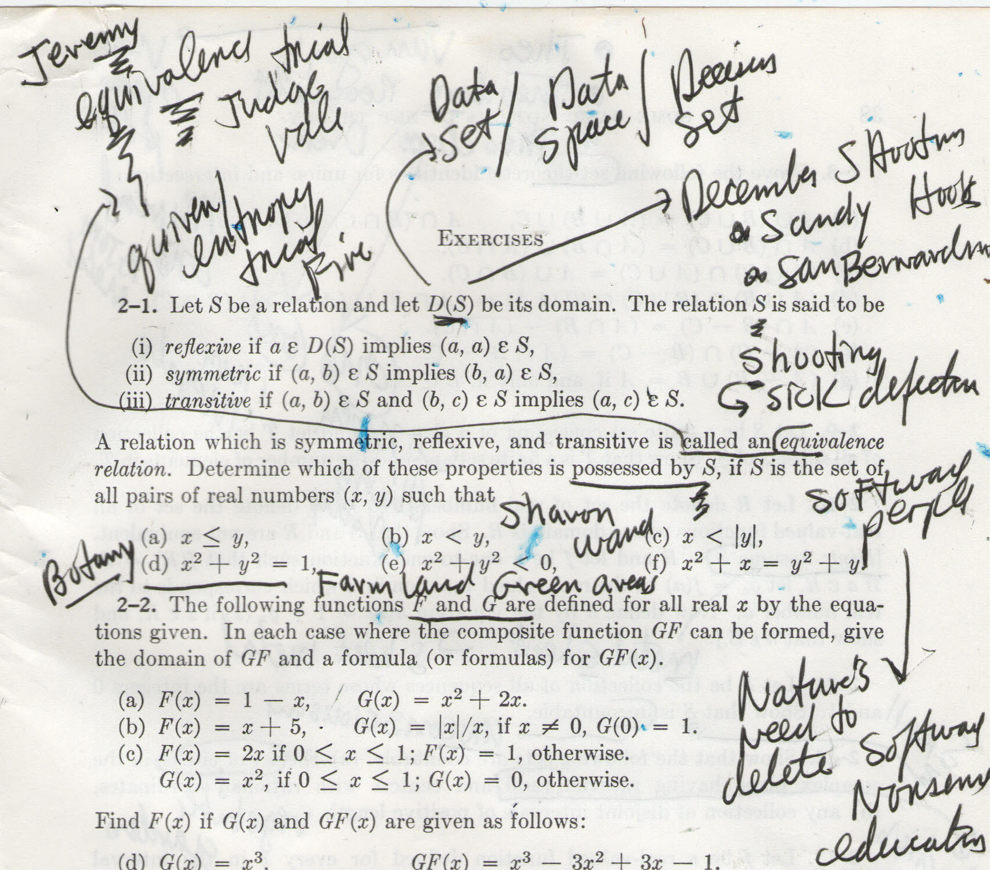 Jeremy
equivalence trial
Judge
Data Set / Data Space / Decision Set
December Shooting
Sandy Hook
San Bernardino
entropy
trial
EXERCISES
2–1. Let S be a relation and let D(S) be its domain. The relation S is said to be
(i) reflexive if a ε D(S) implies (a, a) ε S,
(ii) symmetric if (a, b) ε S implies (b, a) ε S,
(iii) transitive if (a, b) ε S and (b, c) ε S implies (a, c) ε S.
Shooting
sick
A relation which is symmetric, reflexive, and transitive is called an equivalence
relation. Determine which of these properties is possessed by S, if S is the set of
all pairs of real numbers (x, y) such that
Shawn
Softway
people
(a) x ≤ y, (b) x < y, (c) x < |y|,
(d) x² + y² = 1, (e) x² + y² < 0, (f) x² + x = y² + y.
Botany
Farm and Green areas
2–2. The following functions F and G are defined for all real x by the equa-
tions given. In each case where the composite function GF can be formed, give
the domain of GF and a formula (or formulas) for GF(x).
(a) F(x) = 1 − x, G(x) = x² + 2x.
(b) F(x) = x + 5, G(x) = |x|/x, if x ≠ 0, G(0) = 1.
(c) F(x) = 2x if 0 ≤ x ≤ 1; F(x) = 1, otherwise.
G(x) = x² if 0 ≤ x ≤ 1; G(x) = 0, otherwise.
Nature's
Need to
delete Softway
Nonsense
education
Find F(x) if G(x) and GF(x) are given as follows:
(d) G(x) = x³, GF(x) = x³ − 3x² + 3x − 1.